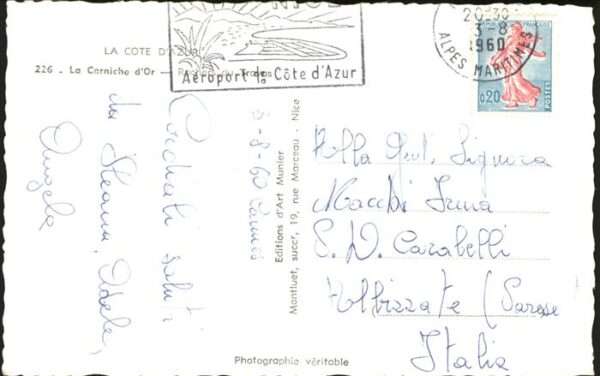 NICE
Aéroport de la Côte d'Azur
20-30
3-8
1960
ALPES MARITIMES
0,20
POSTES
LA COTE D'AZUR
226 . La Corniche d'Or -
Cordiali saluti
da Ileana, Adele,
Angela
3-8-60 Cannes
Editions d'Art Munier
Mantluet, succr, 19, rue Marceau - Nice
Alla Gent. Signora
Macchi Irma
E. D. Carabelli
Albizzate (Varese)
Italia
Photographie véritable